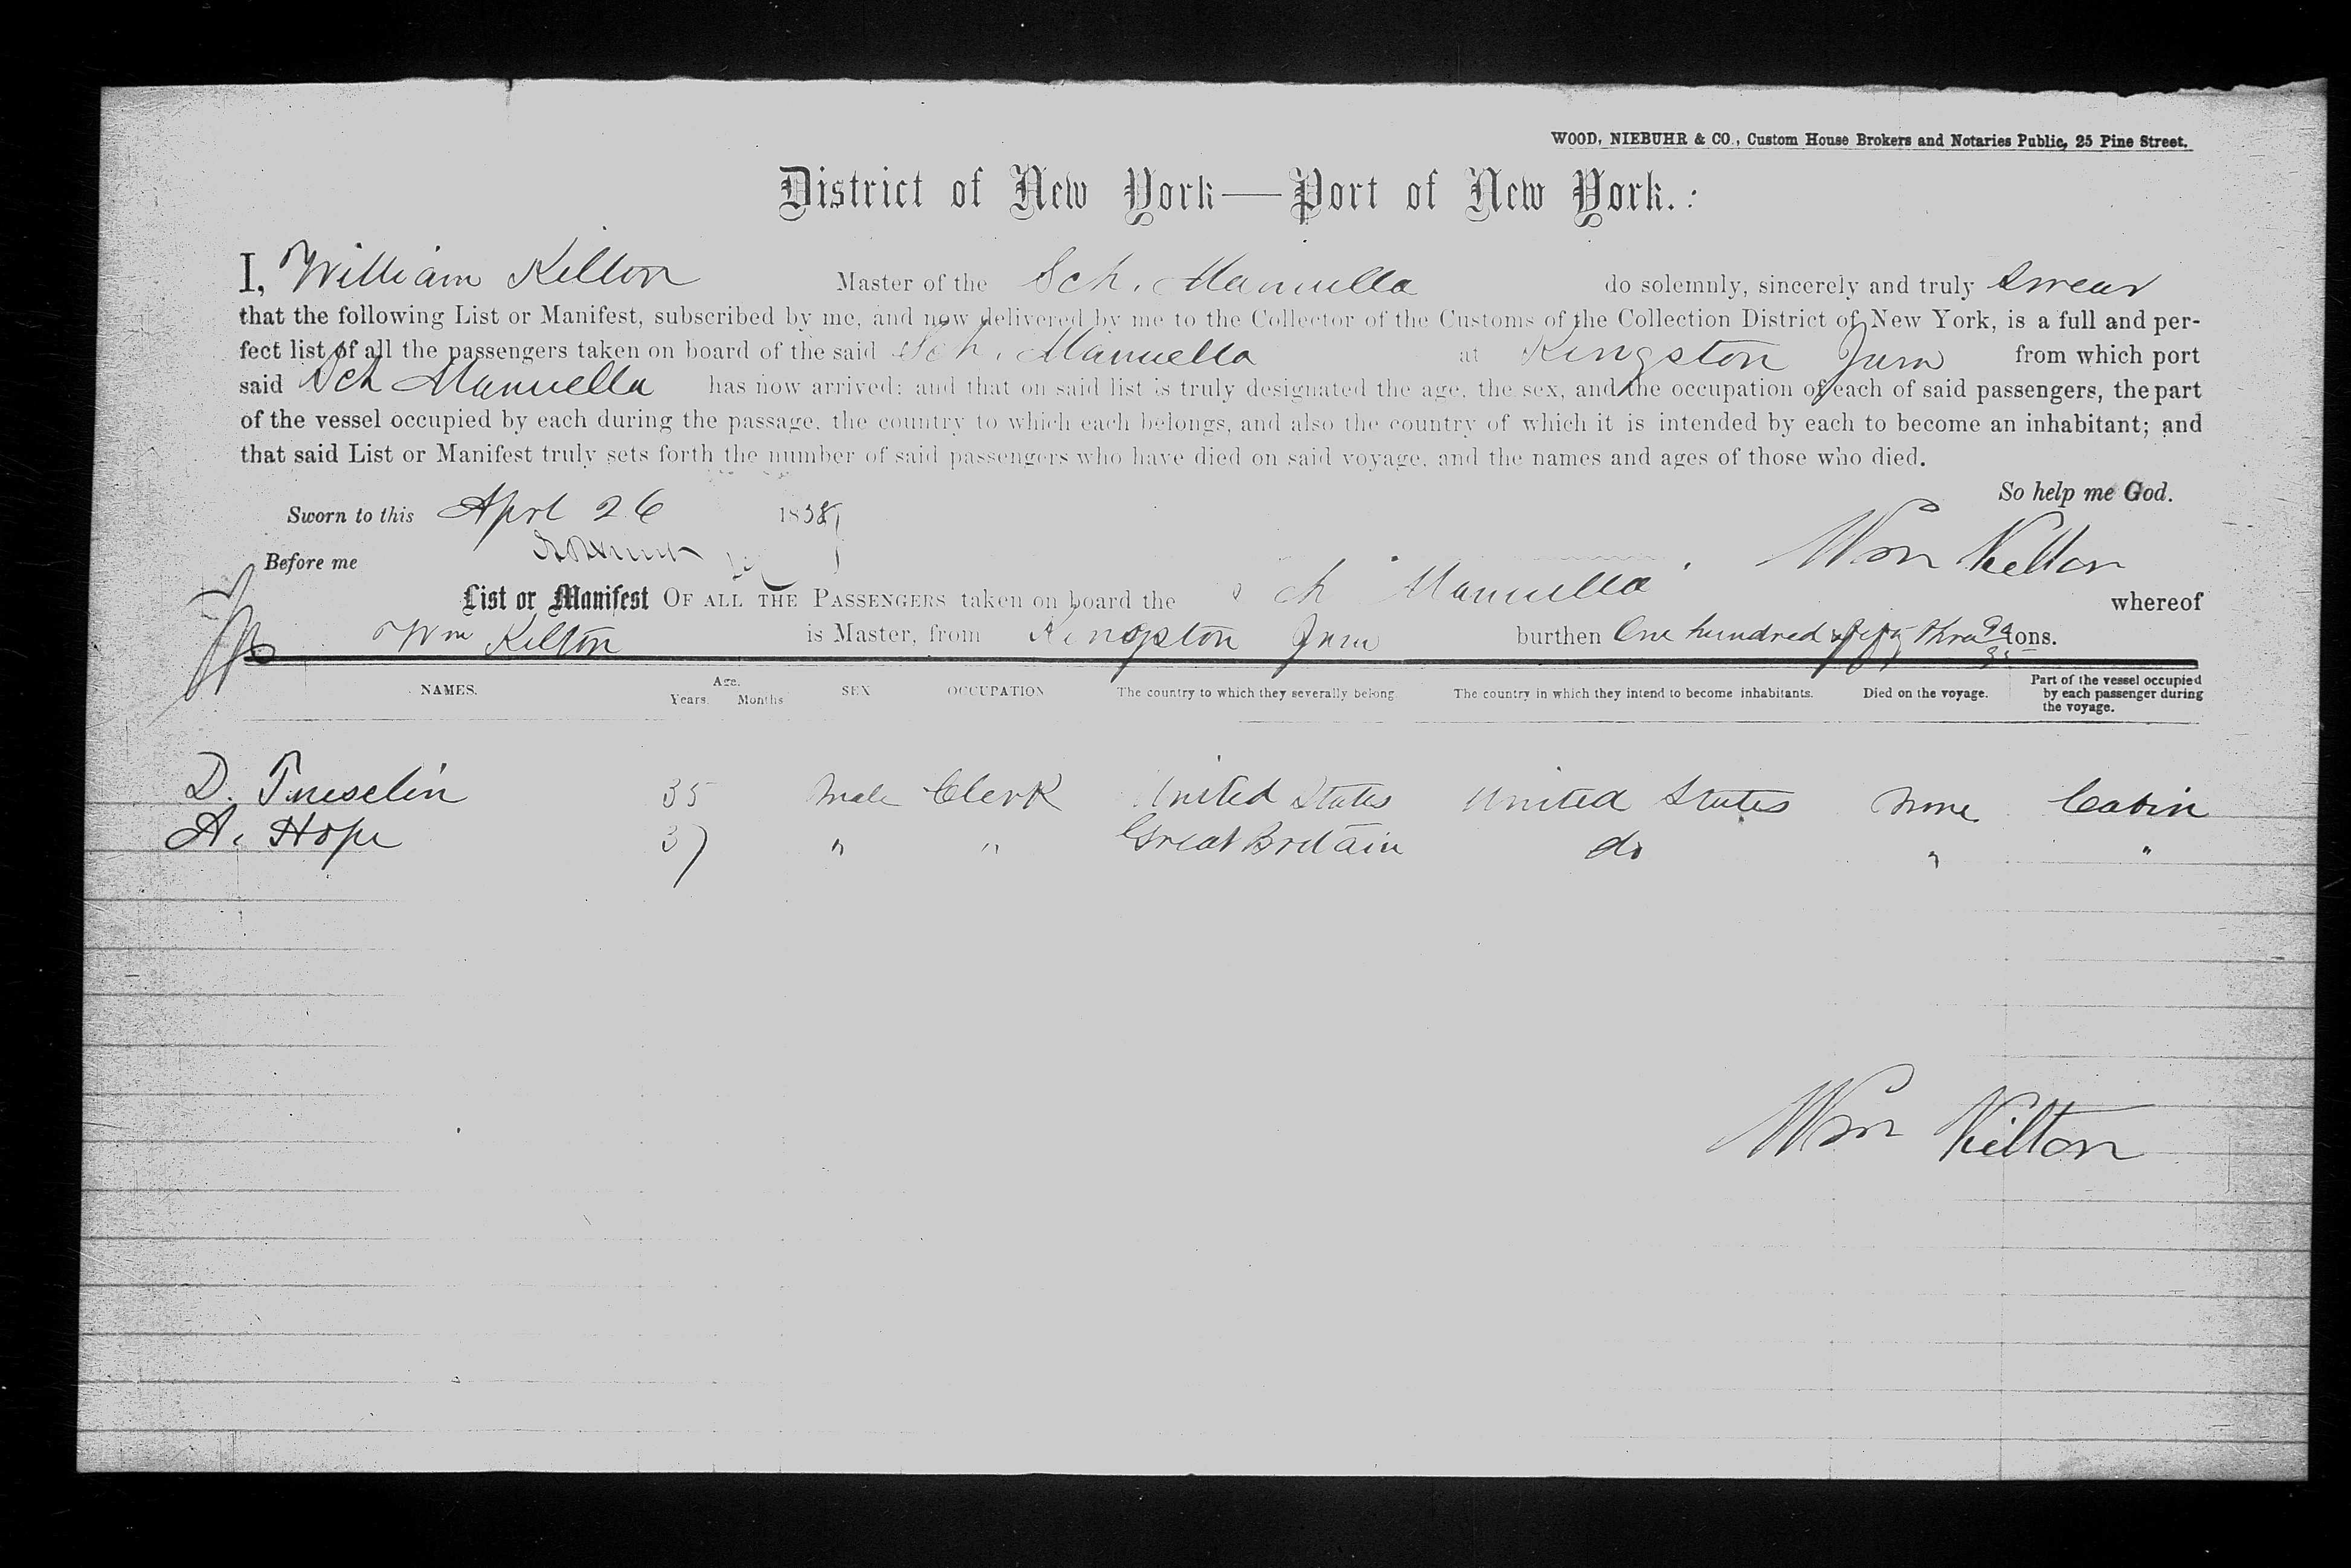 WOOD, NIEBUHR & CO., Custom House Brokers and Notaries Public, 25 Pine Street.
District of New York—Port of New York.
I, William Kelton Master of the Sch. Manuella do solemnly, sincerely and truly Swear
that the following List or Manifest, subscribed by me, and now delivered by me to the Collector of the Customs of the Collection District of New York, is a full and per-
fect list of all the passengers taken on board of the said Sch. Manuella at Kingston Jam from which port
said Sch Manuella has now arrived: and that on said list is truly designated the age, the sex, and the occupation of each of said passengers, the part
of the vessel occupied by each during the passage, the country to which each belongs, and also the country of which it is intended by each to become an inhabitant; and
that said List or Manifest truly sets forth the number of said passengers who have died on said voyage, and the names and ages of those who died.
So help me God.
Sworn to this Aprl 26 18
Before me
Wm Kelton
List or Manifest OF ALL THE PASSENGERS taken on board the Sch "Manuella" whereof
Wm Kelton is Master, from Kingston Jam burthen One hundred & fifty three tons.
NAMES. Age. Years. Months SEX OCCUPATION The country to which they severally belong. The country in which they intend to become inhabitants. Died on the voyage. Part of the vessel occupied by each passenger during the voyage.
D. 35 Male Clerk United States United States None Cabin
A. Hope 37 " " Great Britain do " "
Wm Kelton